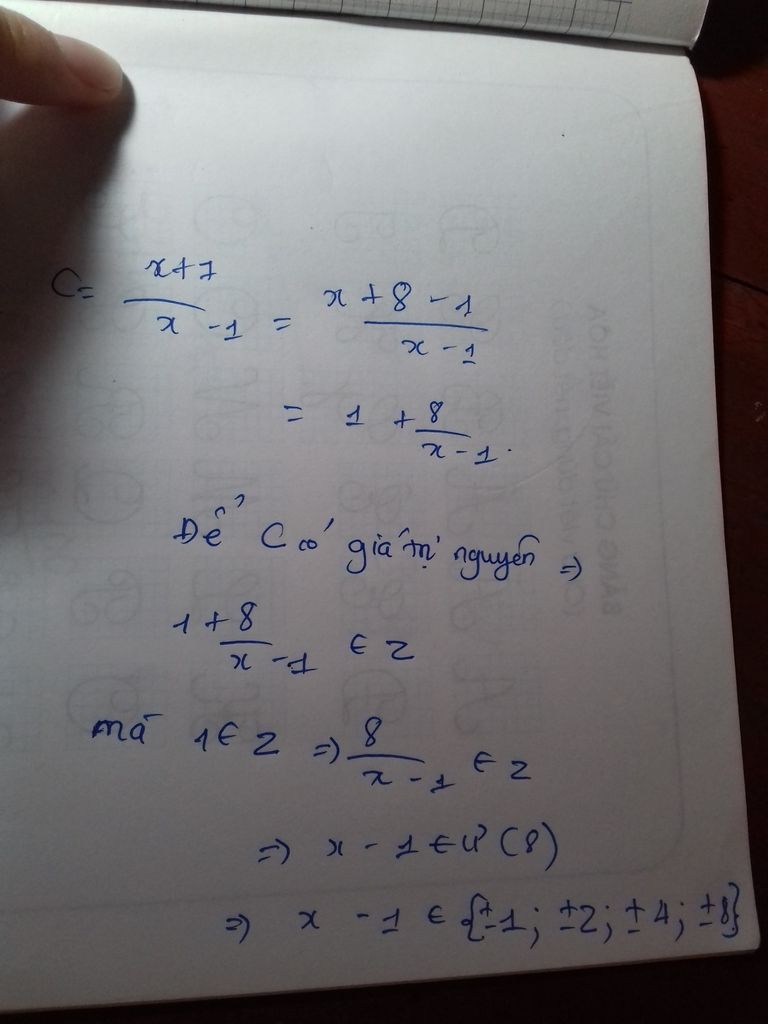 C = \frac{x+7}{x-1} = \frac{x+8-1}{x-1}
= 1 + \frac{8}{x-1}.
Để C có giá trị nguyên =>
1 + \frac{8}{x-1} ∈ Z
mà 1 ∈ Z => \frac{8}{x-1} ∈ Z
=> x - 1 ∈ Ư (8)
=> x - 1 ∈ {±1; ±2; ±4; ±8}